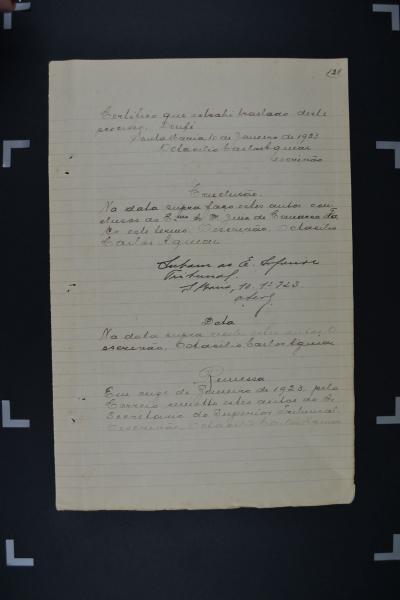 121
Certifico que extrahi traslado deste
processo. Dou fé.
Santa Maria 10 de Janeiro de 1923
Octacilio Carlos Aguiar
Escrivão
Conclusão.
Na data supra faço estes autos con
clusos ao Exmo Sr. M. Juiz de Comarca Fa
ço este termo. O escrivão, Octacilio
Carlos Aguiar
Subam ao E. Superior
Tribunal.
S. Maria, 10.1º.923.
Data
Na data supra recebi estes autos. O
escrivão, Octacilio Carlos Aguiar
Remessa
Em onze de Janeiro de 1923, pelo
Correio remetto estes autos ao Sr.
Secretario do Superior Tribunal.
O escrivão, Octacilio Carlos Aguiar